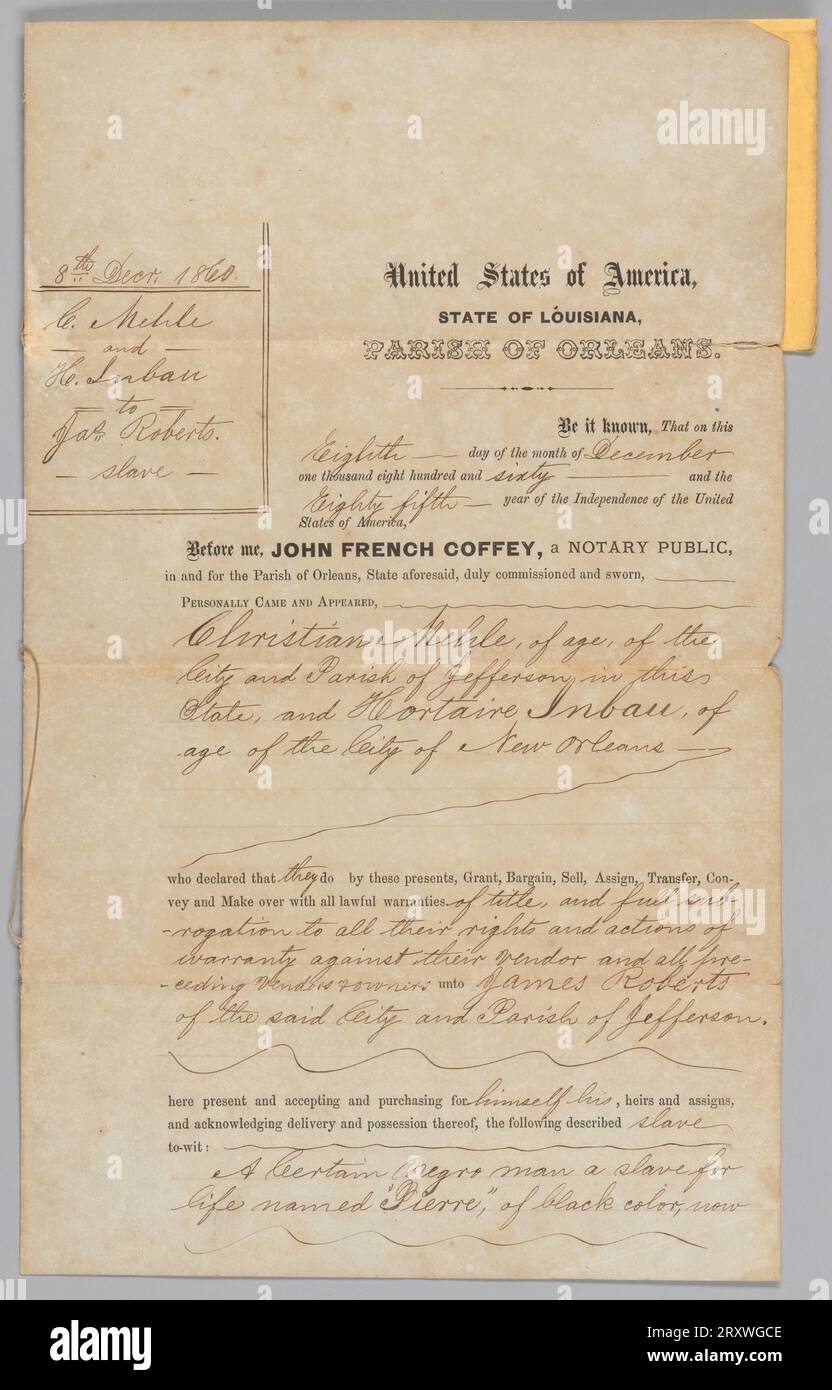 8th Decr. 1860.
C. Mehle
and
H. Inbau
to
Jas. Roberts.
slave
United States of America,
STATE OF LOUISIANA,
PARISH OF ORLEANS.
Be it known, That on this
Eighth day of the month of December
one thousand eight hundred and sixty and the
Eighty fifth year of the Independence of the United
States of America,
Before me, JOHN FRENCH COFFEY, a NOTARY PUBLIC,
in and for the Parish of Orleans, State aforesaid, duly commissioned and sworn,
PERSONALLY CAME AND APPEARED,
Christian Mehle, of age, of the
City and Parish of Jefferson, in this
State, and Hortaire Inbau, of
age of the City of New Orleans
who declared that they do by these presents, Grant, Bargain, Sell, Assign, Transfer, Con-
vey and Make over with all lawful warranties of title, and full sub-
-rogation to all their rights and actions of
warranty against their vendor and all pre-
-ceding vendors & owners unto James Roberts
of the said City and Parish of Jefferson.
here present and accepting and purchasing for himself his, heirs and assigns,
and acknowledging delivery and possession thereof, the following described slave
to-wit:
A Certain Negro man a slave for
life named "Pierre," of black color, now
alamy
Image ID: 2RXWGCE
www.alamy.com